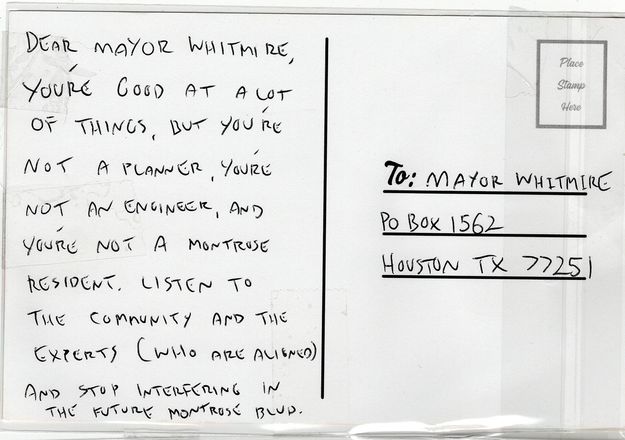 DEAR MAYOR WHITMIRE,
YOU'RE GOOD AT A LOT
OF THINGS, BUT YOU'RE
NOT A PLANNER, YOU'RE
NOT AN ENGINEER, AND
YOU'RE NOT A MONTROSE
RESIDENT. LISTEN TO
THE COMMUNITY AND THE
EXPERTS (WHO ARE ALIGNED)
AND STOP INTERFERING IN
THE FUTURE MONTROSE BLVD.
Place
Stamp
Here
To: MAYOR WHITMIRE
PO BOX 1562
HOUSTON TX 77251